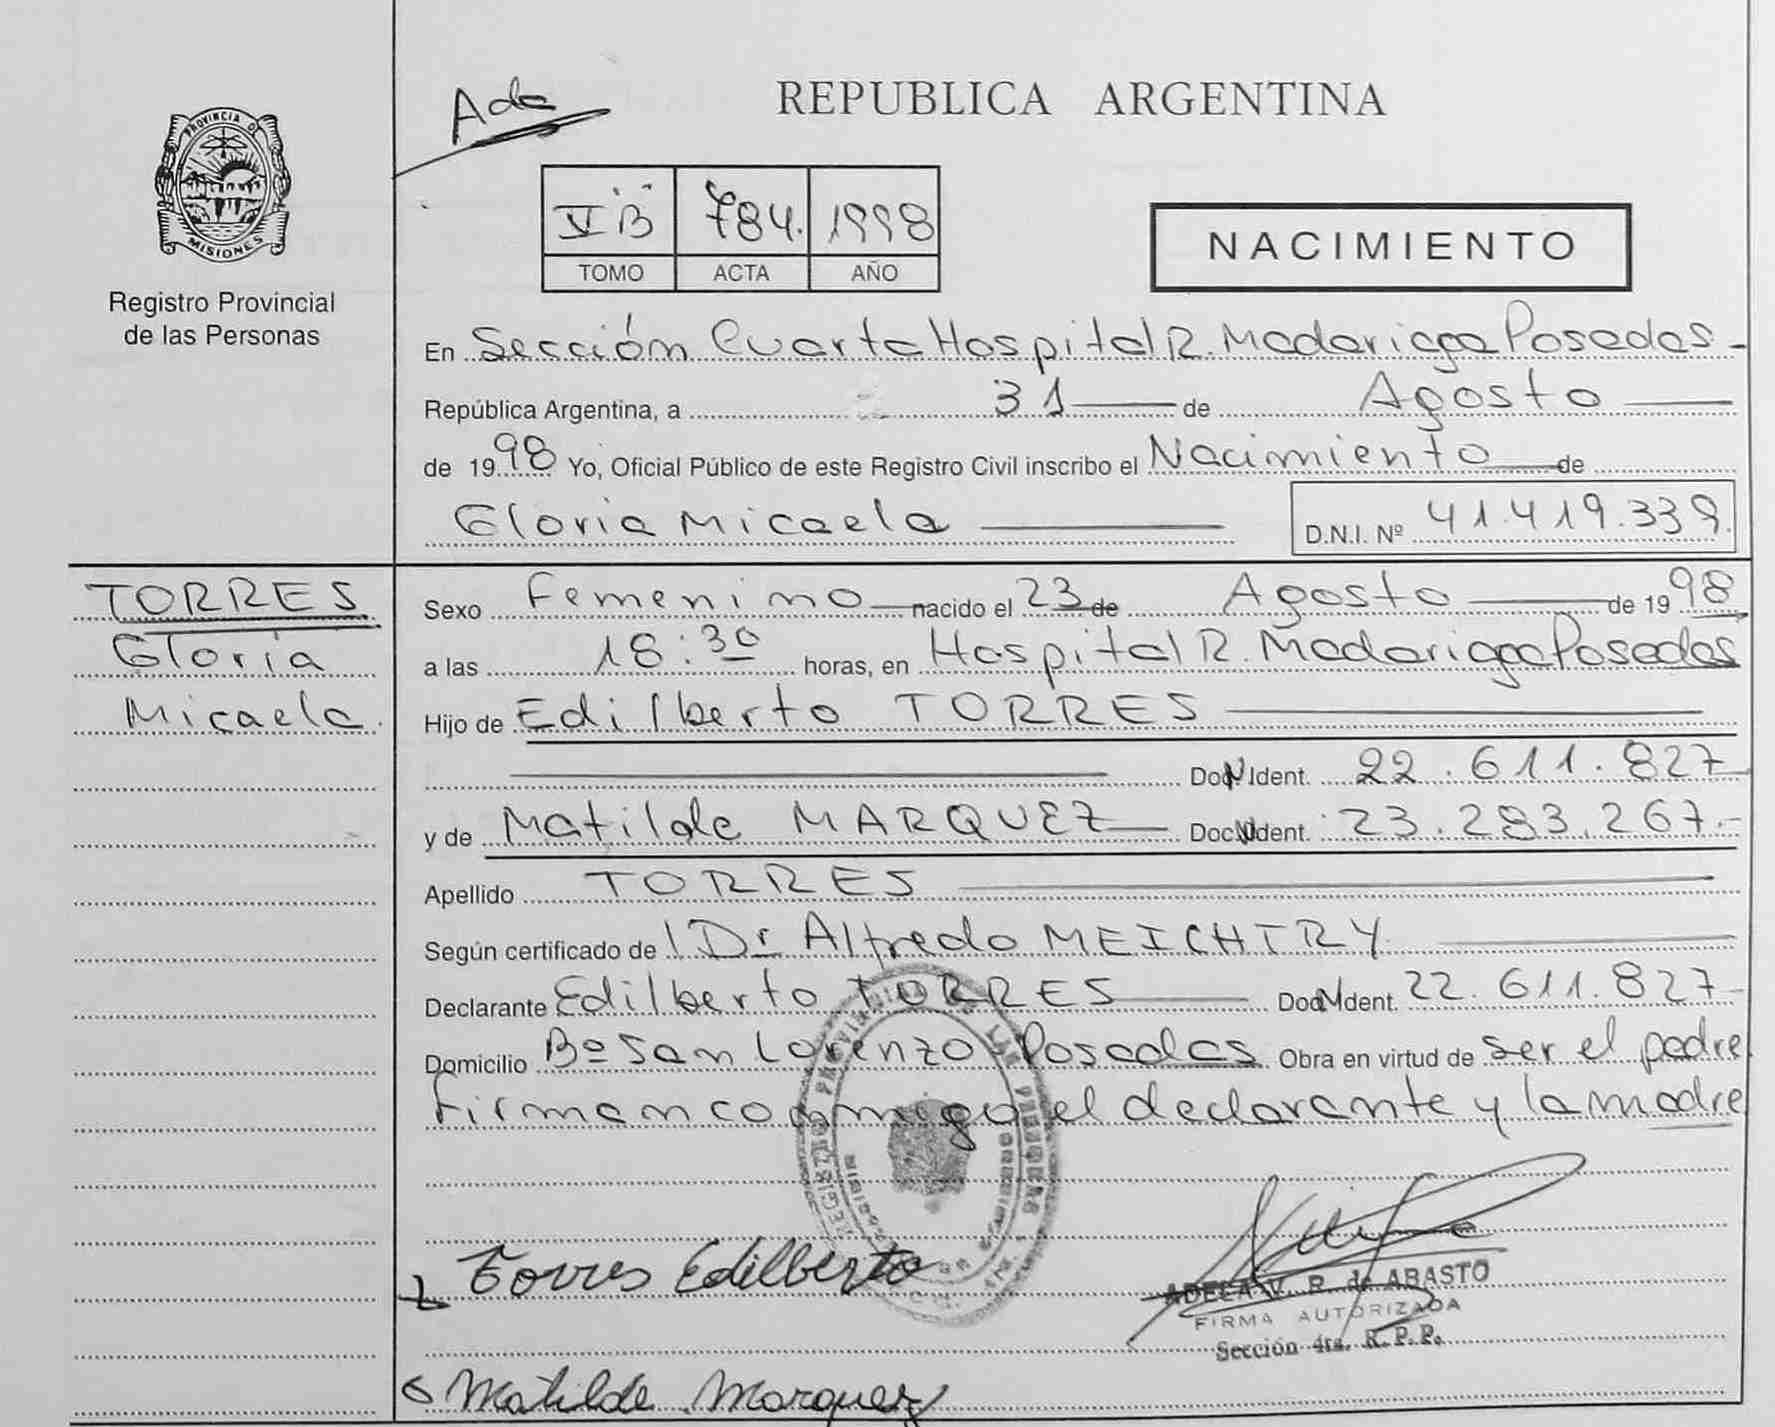 Ada
REPUBLICA ARGENTINA
PROVINCIA DE
MISIONES
Registro Provincial
de las Personas
V B 784. 1998
TOMO ACTA AÑO
NACIMIENTO
En Sección Cuarta Hospital R. Madariaga Posadas -
República Argentina, a 31 de Agosto
de 1998 Yo, Oficial Público de este Registro Civil inscribo el Nacimiento de
Gloria Micaela
D.N.I. Nº 41.419.339.
TORRES
Gloria
Micaela.
Sexo Femenino nacido el 23 de Agosto de 1998
a las 18:30 horas, en Hospital R. Madariaga Posadas
Hijo de Edilberto TORRES
Doc. Ident. 22.611.827
y de Matilde MARQUEZ Doc. Ident. 23.293.267.-
Apellido TORRES
Según certificado de Dr Alfredo MEICHTRY
Declarante Edilberto TORRES Doc. Ident. 22.611.827
Domicilio Bº San Lorenzo Posadas Obra en virtud de ser el padre
Firman conmigo el declarante y la madre
Torres Edilberto
ADELA V. R. de ABASTO
FIRMA AUTORIZADA
Sección 4ta. R.P.P.
Matilde Marquez